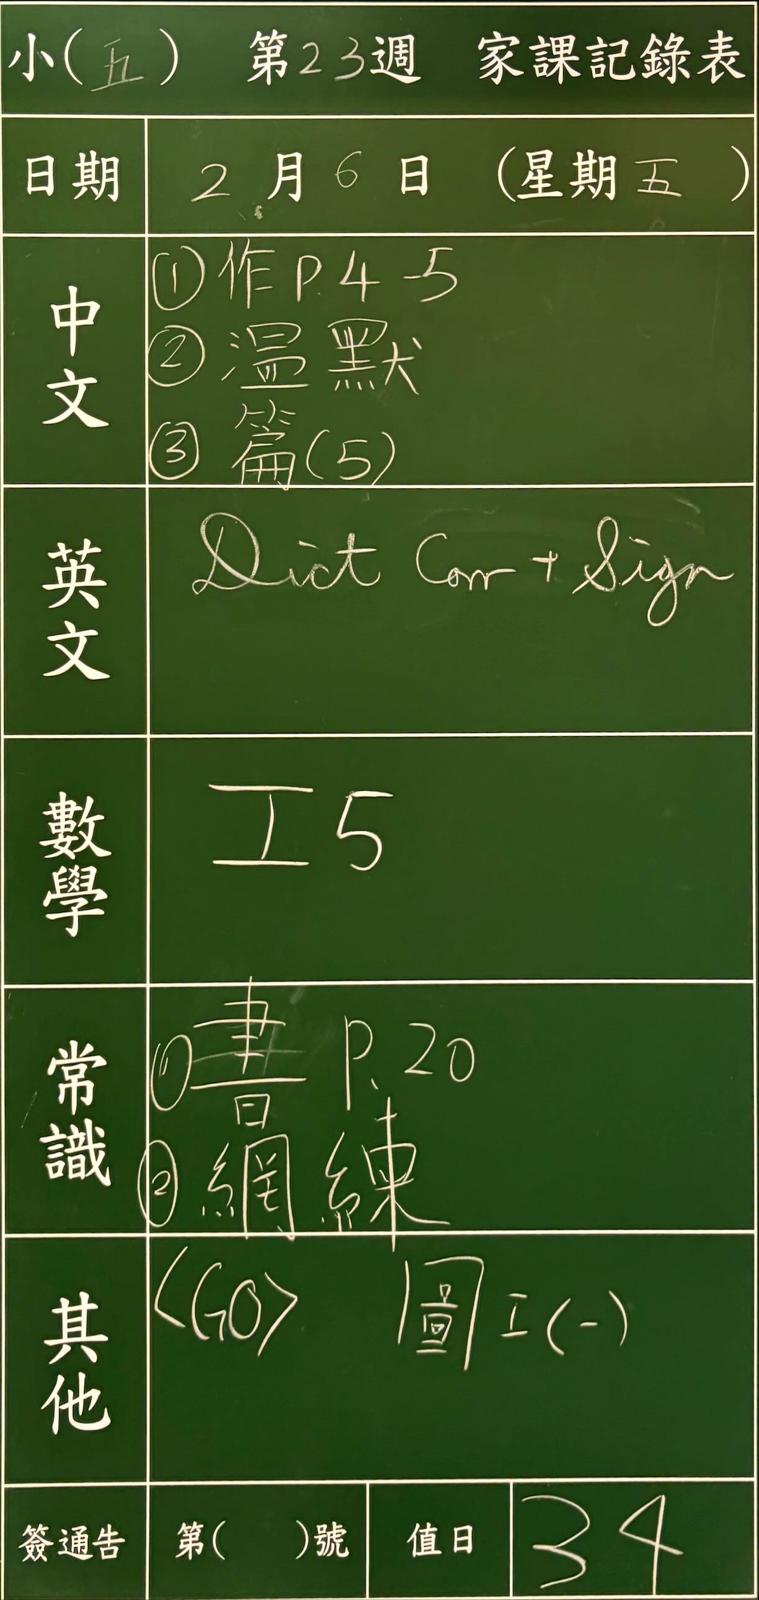 小(五) 第23週 家課記錄表
日期 2月6日 (星期五)
中文
①作P.4-5
②溫默
③篇(5)
英文
Dict Corr + Sign
數學
工5
常識
①書 P.20
②網練
其他
<GO> 圖工(一)
簽通告 第( )號 值日 34